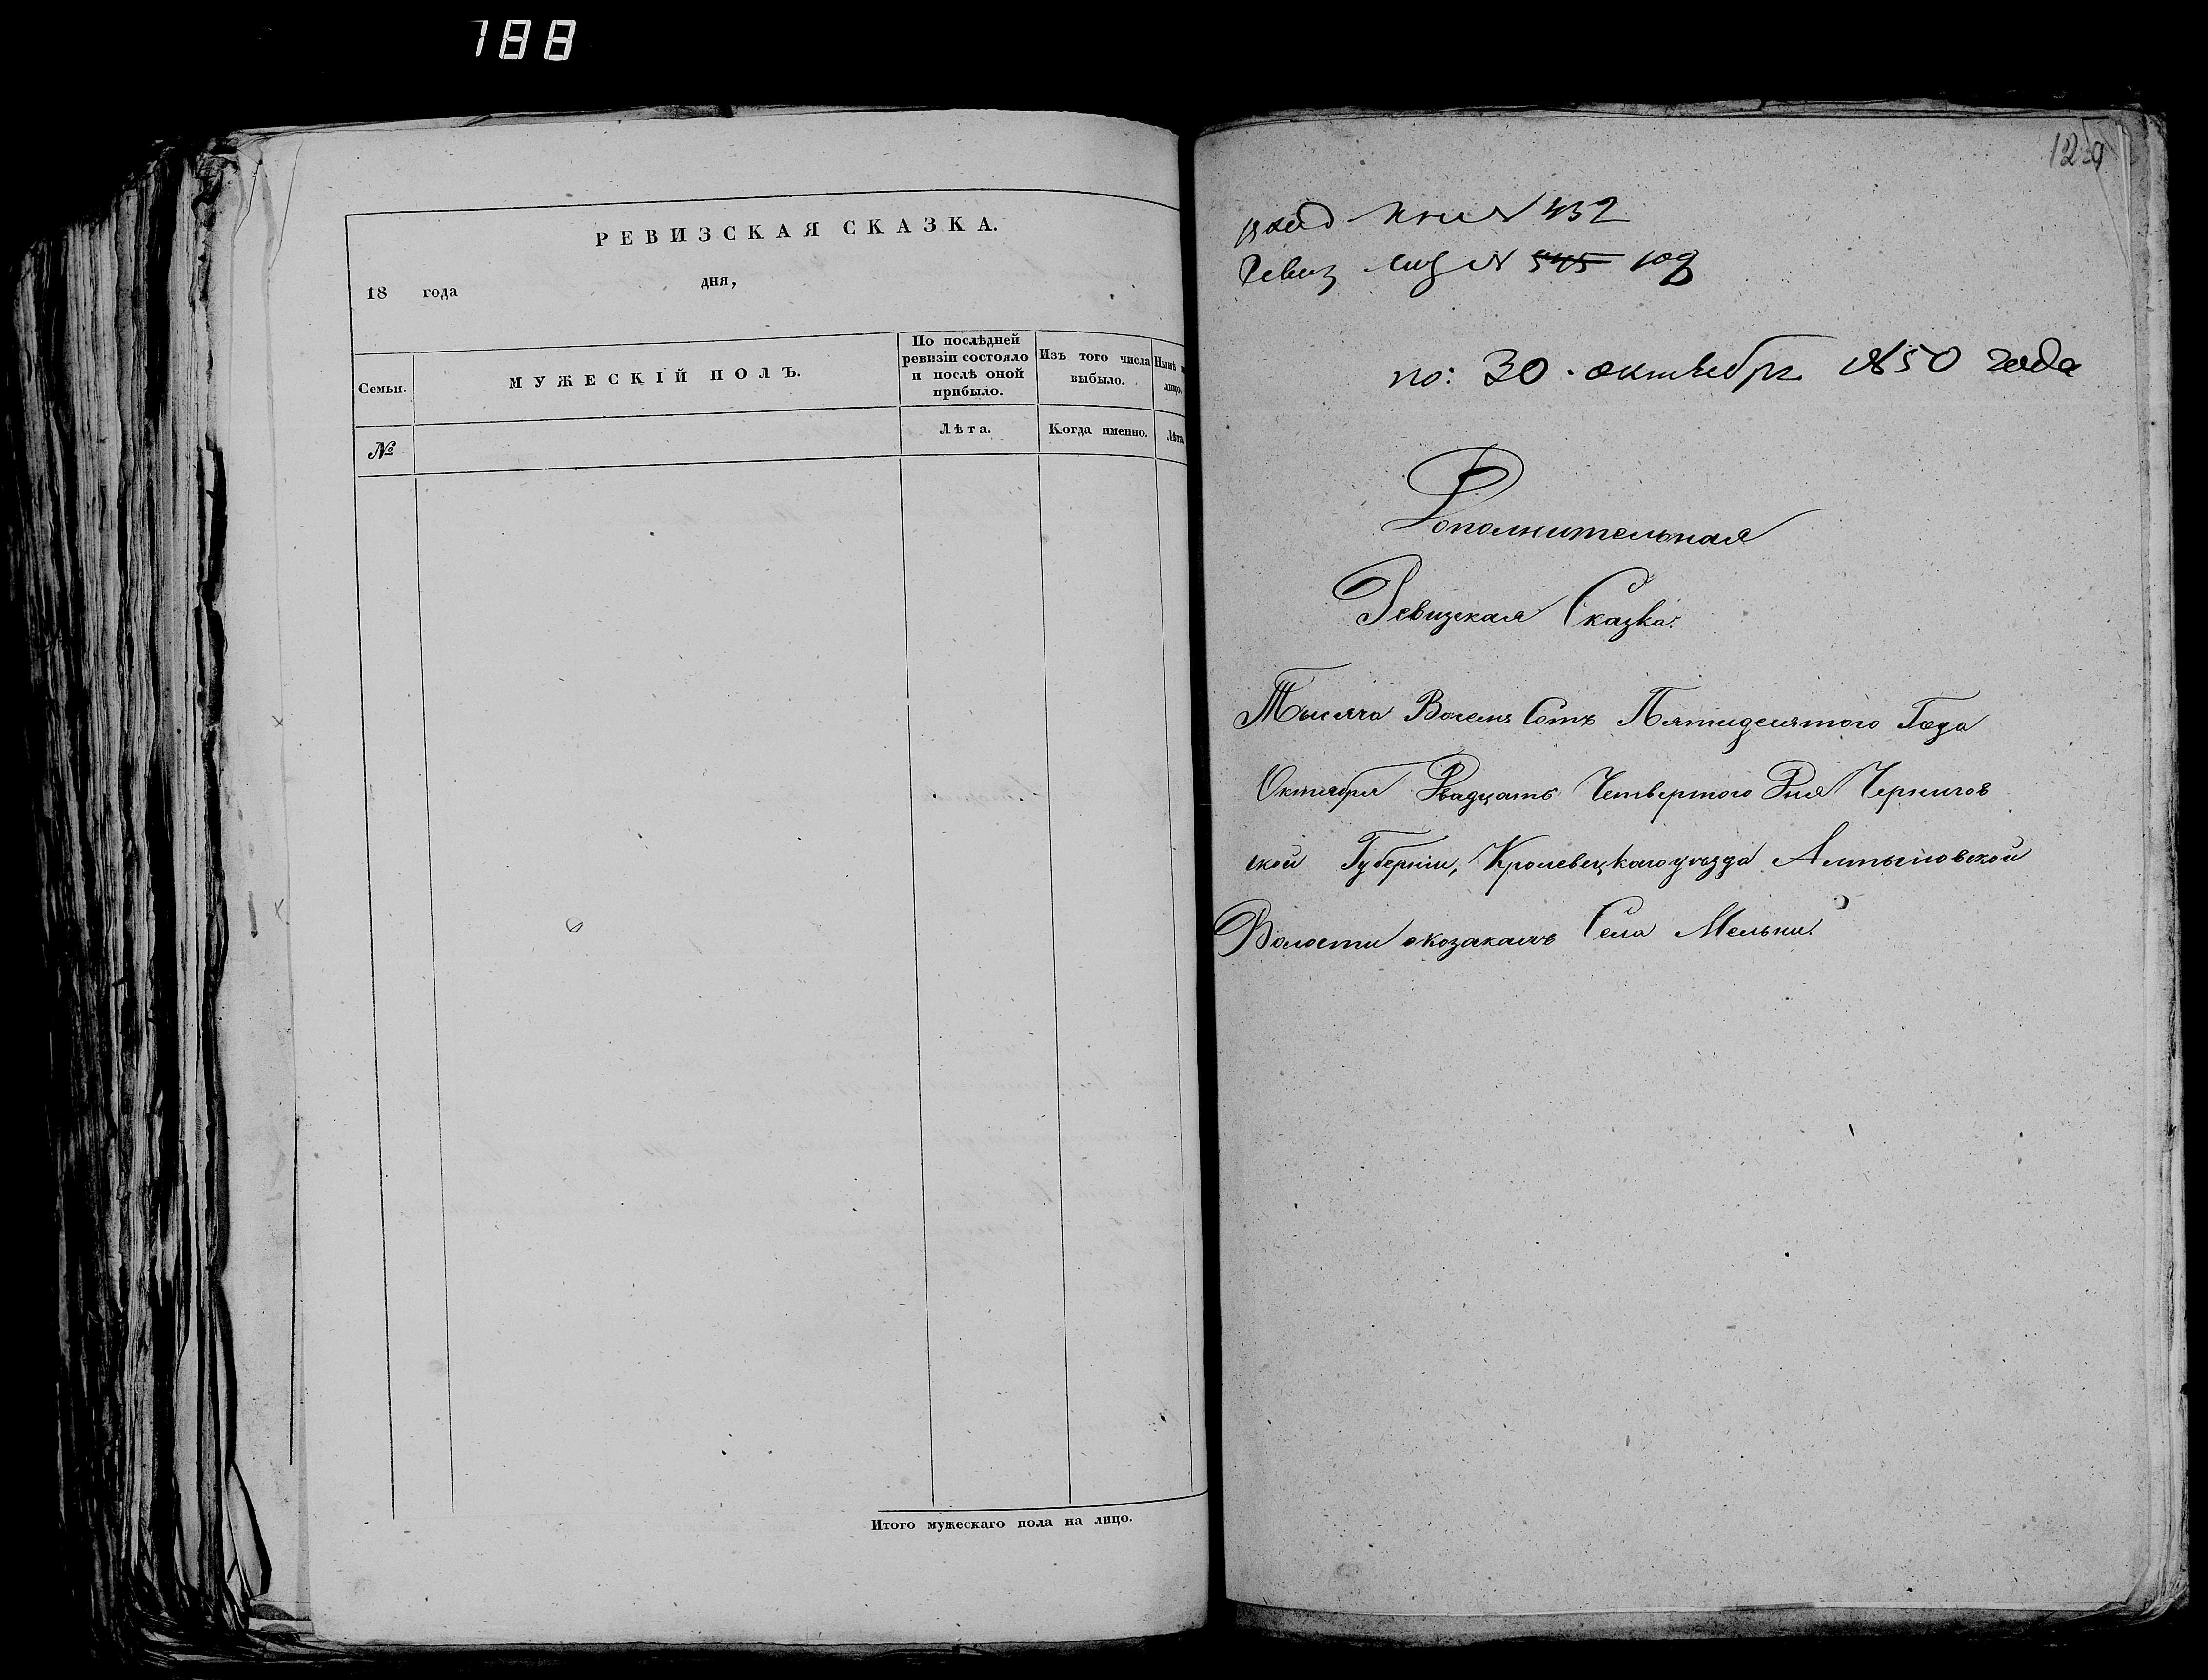 188
РЕВИЗСКАЯ СКАЗКА.
18 года дня,
Семьи.
МУЖЕСКІЙ ПОЛЪ.
По послѣдней
ревизіи состояло
и послѣ оной
прибыло.
Изъ того числа
выбыло.
Нынѣ
лицо.
№
Лѣта.
Когда именно.
Лѣта.
Итого мужескаго пола на лицо.
129
вход № 432
Ревиз № 545 109
по: 30. октября 1850 года
Дополнительная
Ревизская Сказка.
Тысяча Восемь Сотъ Пятидесятого Года
Октября Двадцать Четвертого Дня Чернигов
ской Губерніи, Кролевецкаго уѣзда Алтыновской
Волости о козакахъ Села Мельни.